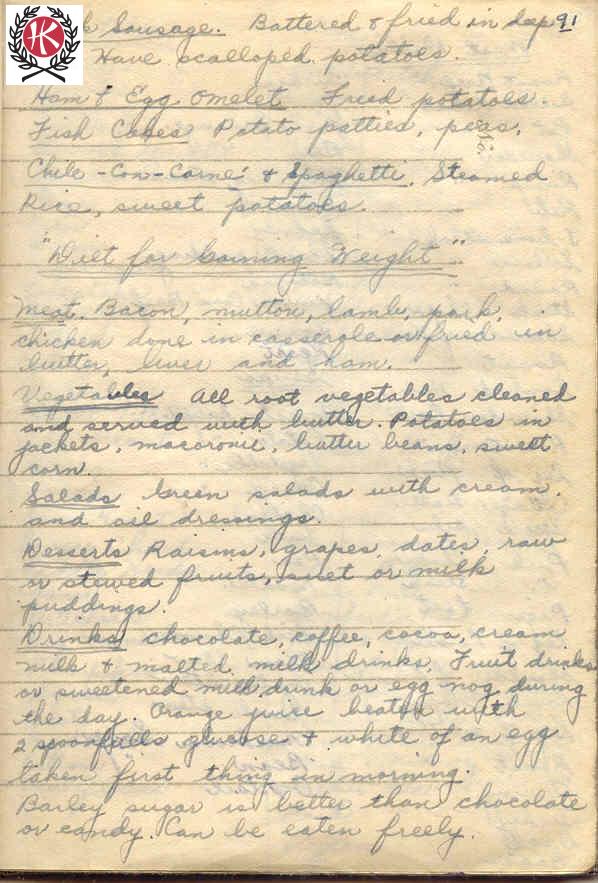 HK
Sausage. Battered & fried in deep 91
Have scalloped potatoes.
Ham & Egg Omelet Fried potatoes.
Fish Cakes Potato patties, peas,
Chile-Con-Carne & Spaghetti. Steamed
Rice, sweet potatoes.
"Diet for Gaining Weight"
Meat. Bacon, mutton, lamb, pork,
chicken done in casserole or fried in
butter, liver and ham.
Vegetables All root vegetables cleaned
and served with butter. Potatoes in
jackets, macaroni, butter beans, sweet
corn.
Salads Green salads with cream,
and oil dressings.
Desserts Raisins, grapes, dates, raw
or stewed fruits, suet or milk
puddings.
Drinks chocolate, coffee, cocoa, cream
milk & malted milk drinks. Fruit drinks
or sweetened milk drink or egg nog during
the day. Orange juice beaten with
2 spoonfulls glucose & white of an egg
taken first thing in morning.
Barley sugar is better than chocolate
or candy. Can be eaten freely.